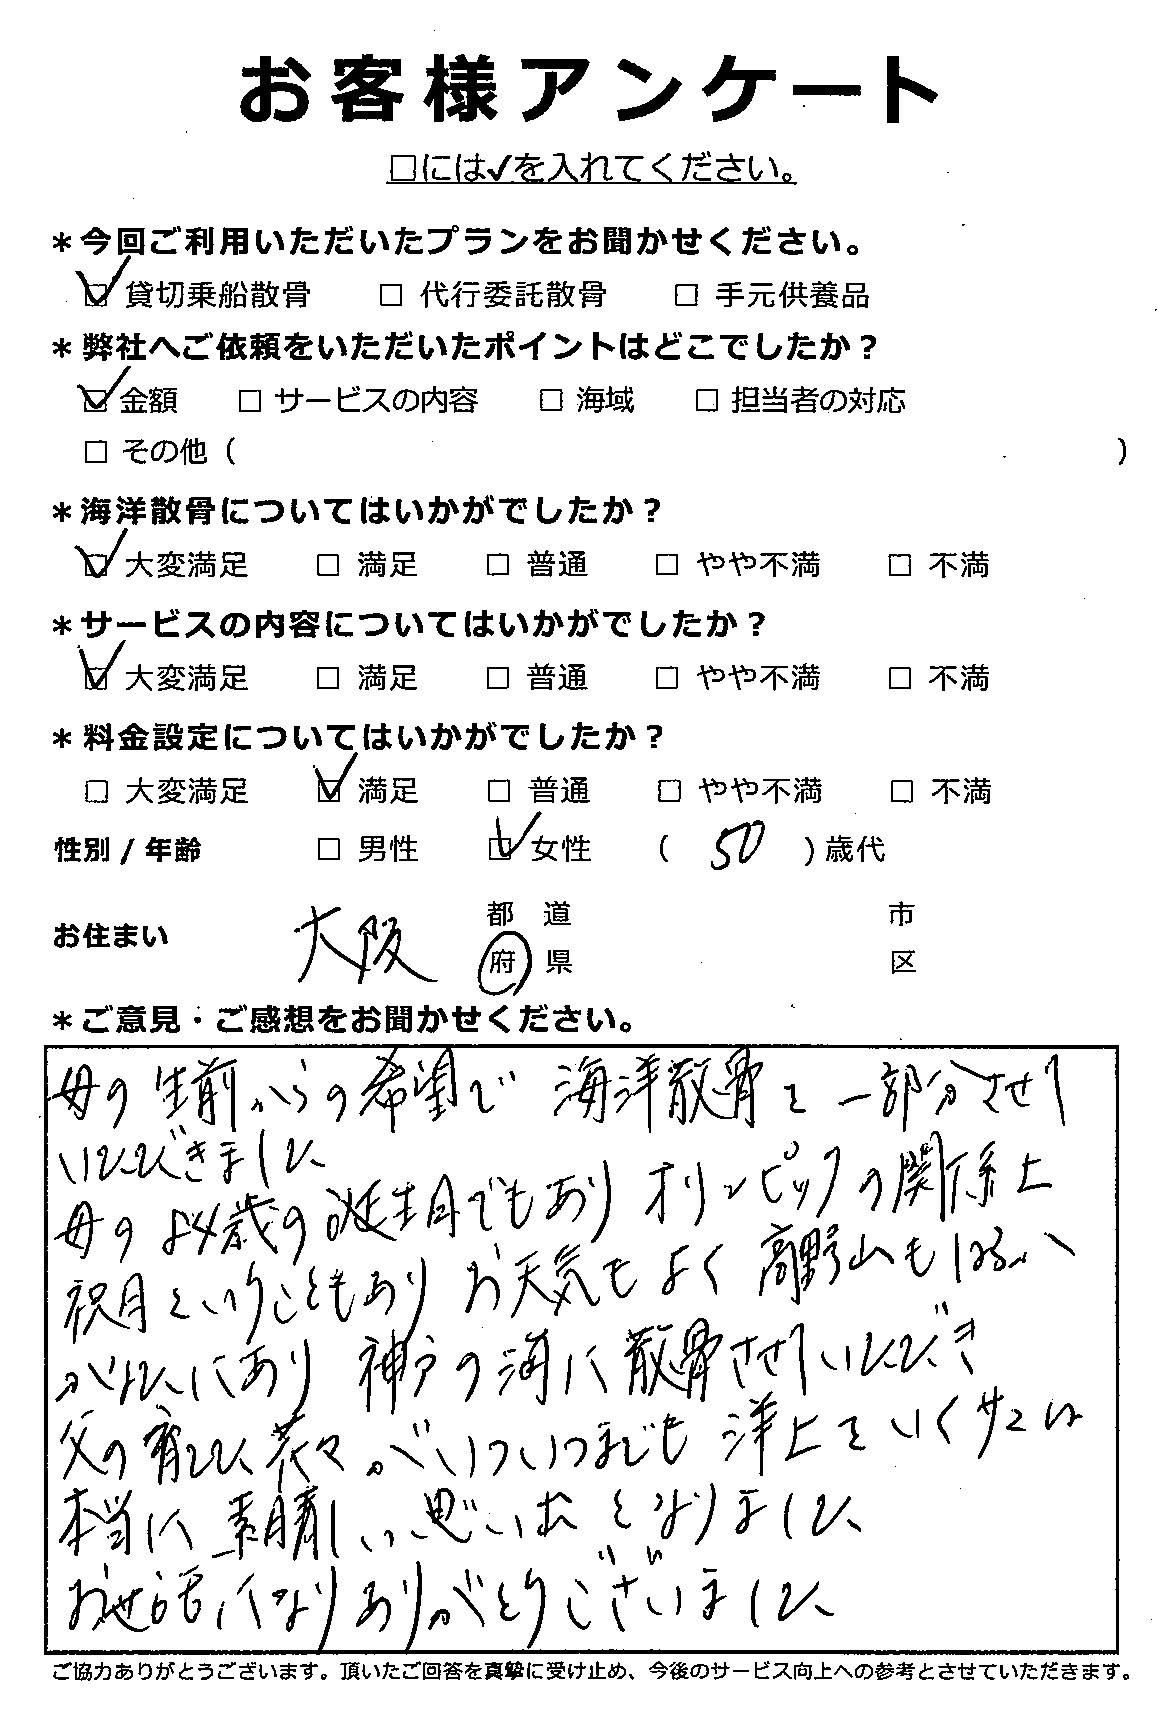 お客様アンケート
□には✓を入れてください。
＊今回ご利用いただいたプランをお聞かせください。
☑ 貸切乗船散骨 □ 代行委託散骨 □ 手元供養品
＊弊社へご依頼をいただいたポイントはどこでしたか？
☑ 金額 □ サービスの内容 □ 海域 □ 担当者の対応
□ その他（ ）
＊海洋散骨についてはいかがでしたか？
☑ 大変満足 □ 満足 □ 普通 □ やや不満 □ 不満
＊サービスの内容についてはいかがでしたか？
☑ 大変満足 □ 満足 □ 普通 □ やや不満 □ 不満
＊料金設定についてはいかがでしたか？
□ 大変満足 ☑ 満足 □ 普通 □ やや不満 □ 不満
性別 / 年齢 □ 男性 ☑ 女性 （ 50 ）歳代
都 道 市
お住まい 大阪 府 県 区
＊ご意見・ご感想をお聞かせください。
母の生前からの希望で 海洋散骨を一部分させて
いただきました
母の84歳の誕生日でもあり オリンピックの関係上
祝日ということもあり お天気もよく 高野山も
にあり 神戸の海に散骨させていただき
父の育てた花々がいついつまでも 洋上を いく
本当に 素晴しい思い出となりました
お世話になりありがとうございました
ご協力ありがとうございます。頂いたご回答を真摯に受け止め、今後のサービス向上への参考とさせていただきます。